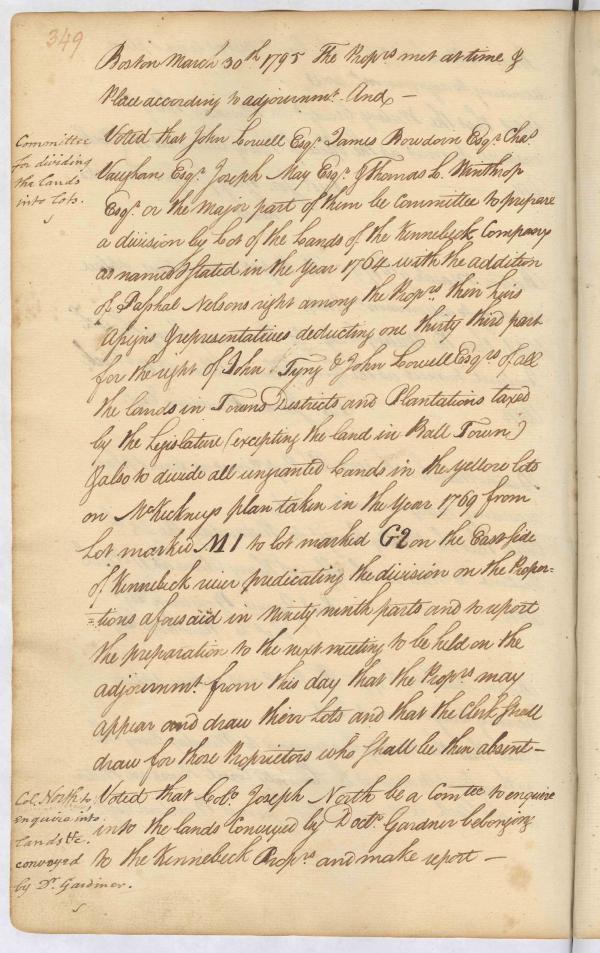 349
Boston March 30th 1795 The Proprs met at time &
Place according to adjournmt. And, —
Committee
for dividing
the lands
into Lots.
Voted that John Lowell Esqr. James Bowdoin Esqr. Chas.
Vaughan Esqr. Joseph May Esqr. & Thomas L. Winthrop
Esqr. or the Major part of them be Committee to prepare
a division by Lot of the Lands of the Kennebeck Company
as named & stated in the Year 1764 with the addition
of Paschal Nelsons right among the Proprs. their heirs
Assigns & representatives deducting one thirty third part
for the right of John Tyng & John Lowell Esqrs of all
the lands in Towns Districts and Plantations taxed
by the Legislature (excepting the land in Ball Town)
& also to divide all ungranted Lands in the yellow lots
on McKechneys plan taken in the Year 1769 from
Lot marked M1 to lot marked G2 on the East side
of Kennebeck river predicating the division on the Propor=
=tions aforesaid in Ninety ninth parts and to report
the preparation to the next meeting to be held on the
adjournmt. from this day that the Proprs may
appear and draw their Lots and that the Clerk shall
draw for those Proprietors who shall be then absent —
Col. North to
Enquire into
Lands &c.
conveyed
by Dr. Gardiner.
Voted that Colo. Joseph North be a Comtee to enquire
into the lands Conveyed by Doctr. Gardiner belonging
to the Kennebeck Proprs and make report —